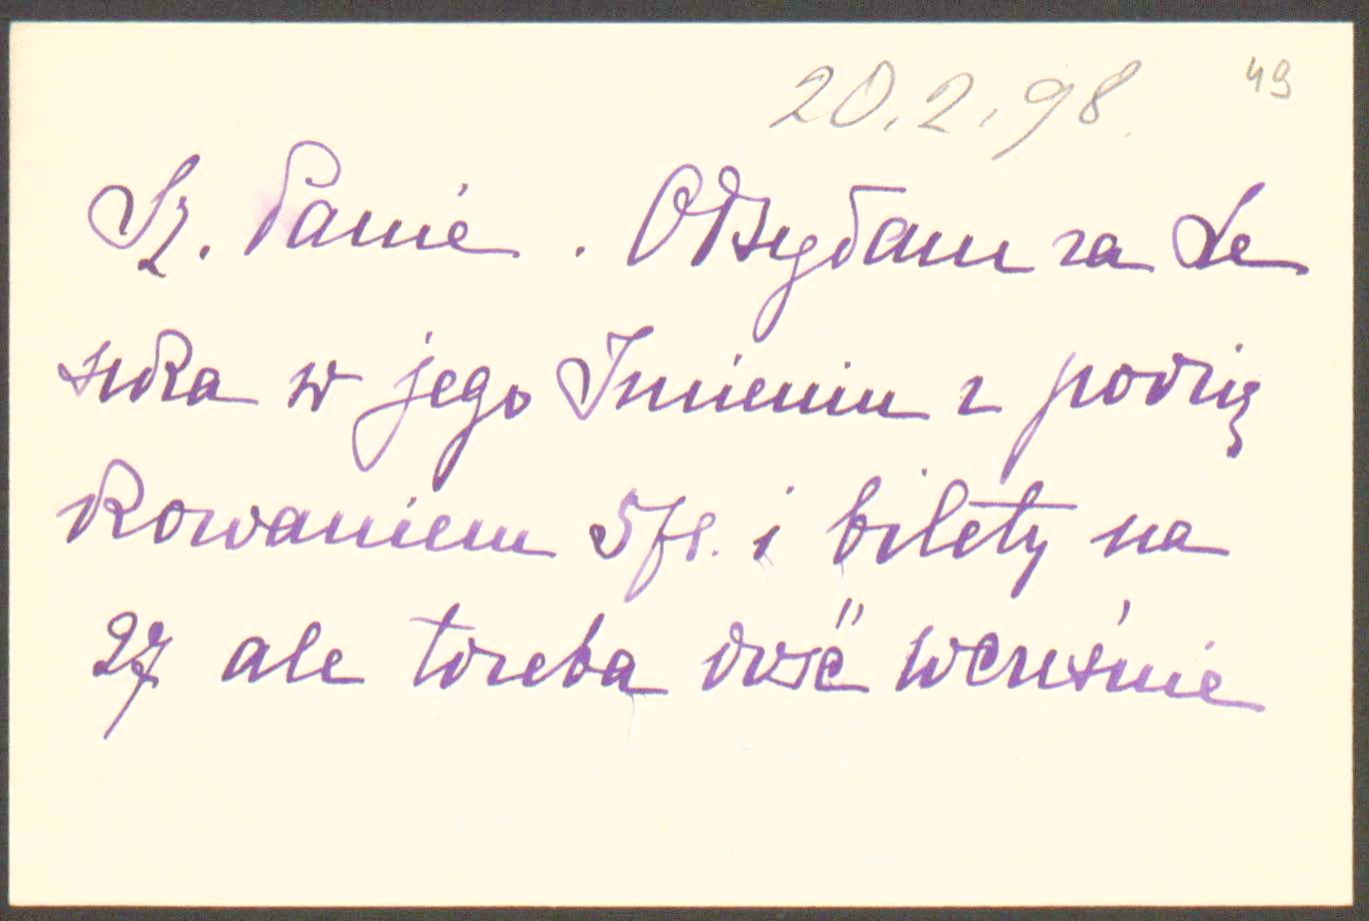 20.2.98. 49
Sz. Panie. Odsyłam za Le
szka w jego Imieniu z podzię
kowaniem 5 fl. i bilety na
27 ale trzeba dość wcześnie